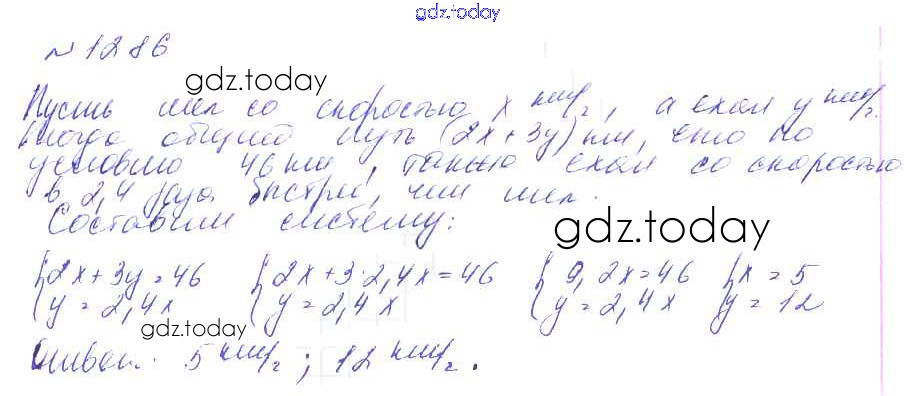 gdz.today
№ 1286
gdz.today
Пусть шел со скоростью x км/ч, а ехал y км/ч.
тогда общий путь (2x+3y) км, что по
условию 46 км, также ехал со скоростью
в 2,4 раза быстрей, чем шел.
Составим систему:
gdz.today
{2x+3y=46 {2x+3·2,4x=46 {9,2x=46 {x=5
{y=2,4x {y=2,4x {y=2,4x {y=12
gdz.today
Ответ: 5 км/ч; 12 км/ч.